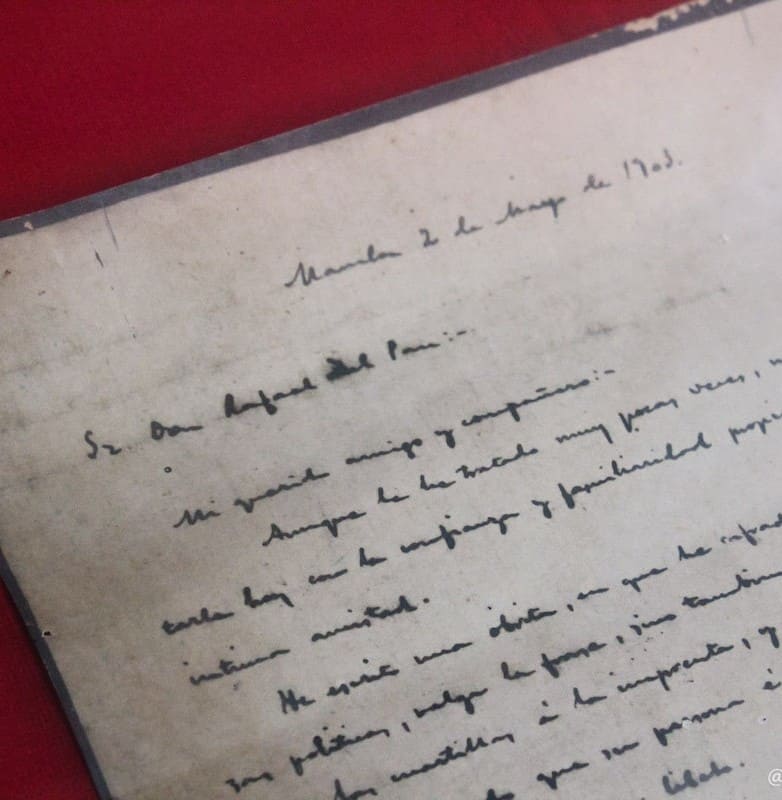 Manila 2 de Mayo de 1903.
Sr. Don Rafael Del Pan:-
Mi querido amigo y compañero:-
Aunque le he tratado muy pocas veces,
tarle hoy con la confianza y familiaridad
intima amistad.
He escrito una obrita, en que he
sus politicas, valga la frase, sino
las cuartillas á la imprenta, y
que su persona á
@